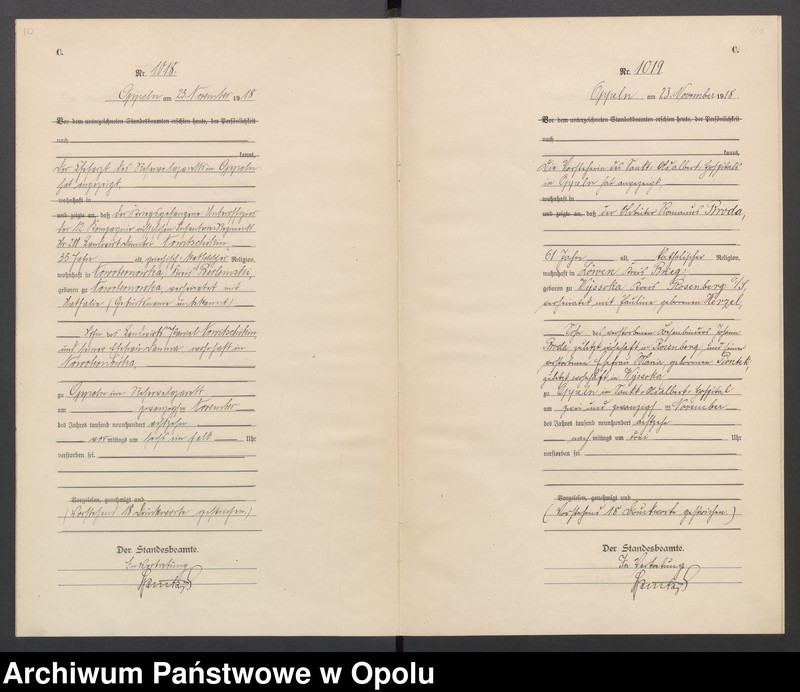 C.
Nr. 1018.
Oppeln am 23. November 1918
Vor dem unterzeichneten Standesbeamten erschien heute, der Persönlichkeit
nach
kannt,
Der Chefarzt des Reservelazaretts in Oppeln
hat angezeigt,
wohnhaft in
und zeigte an, daß der Kriegsgefangene Unteroffizier
der 12. Kompagnie russischen Infanterie Regiments
Nr. 211 Landwirt
35 Jahre alt, Religion,
wohnhaft in Kreis
geboren zu verheiratet mit
Nathalie (Geburtsname unbekannt)
Sohn des Landwirts
und seiner Ehefrau wohnhaft in
zu Oppeln im Reservelazarett
am zwanzigsten November
des Jahres tausend neunhundert achtzehn
vormittags um sechs ein halb Uhr
verstorben sei.
Vorgelesen, genehmigt und
(Vorstehend 18 Druckworte gestrichen.)
Der Standesbeamte.
In Vertretung
C.
Nr. 1019.
Oppeln am 23. November 1918.
Vor dem unterzeichneten Standesbeamten erschien heute, der Persönlichkeit
nach
kannt,
Die Vorsteherin des Sankt Adalbert Hospitals
in Oppeln hat angezeigt,
wohnhaft in
und zeigte an, daß der Arbeiter Romanus Broda,
61 Jahre alt, katholischer Religion,
wohnhaft in Löwen Kreis Brieg,
geboren zu Wyssoka Kreis Rosenberg O/S,
verheiratet mit Pauline geborenen
Sohn des verstorbenen Johann
Broda zuletzt wohnhaft in Rosenberg und seiner
verstorbenen Ehefrau Maria geborenen Piontek,
zuletzt wohnhaft in Wyssoka
zu Oppeln im Sankt Adalbert Hospital
am zwei und zwanzigsten November
des Jahres tausend neunhundert achtzehn
nachmittags um drei Uhr
verstorben sei.
Vorgelesen, genehmigt und
(Vorstehend 18 Druckworte gestrichen.)
Der Standesbeamte.
In Vertretung
Archiwum Państwowe w Opolu